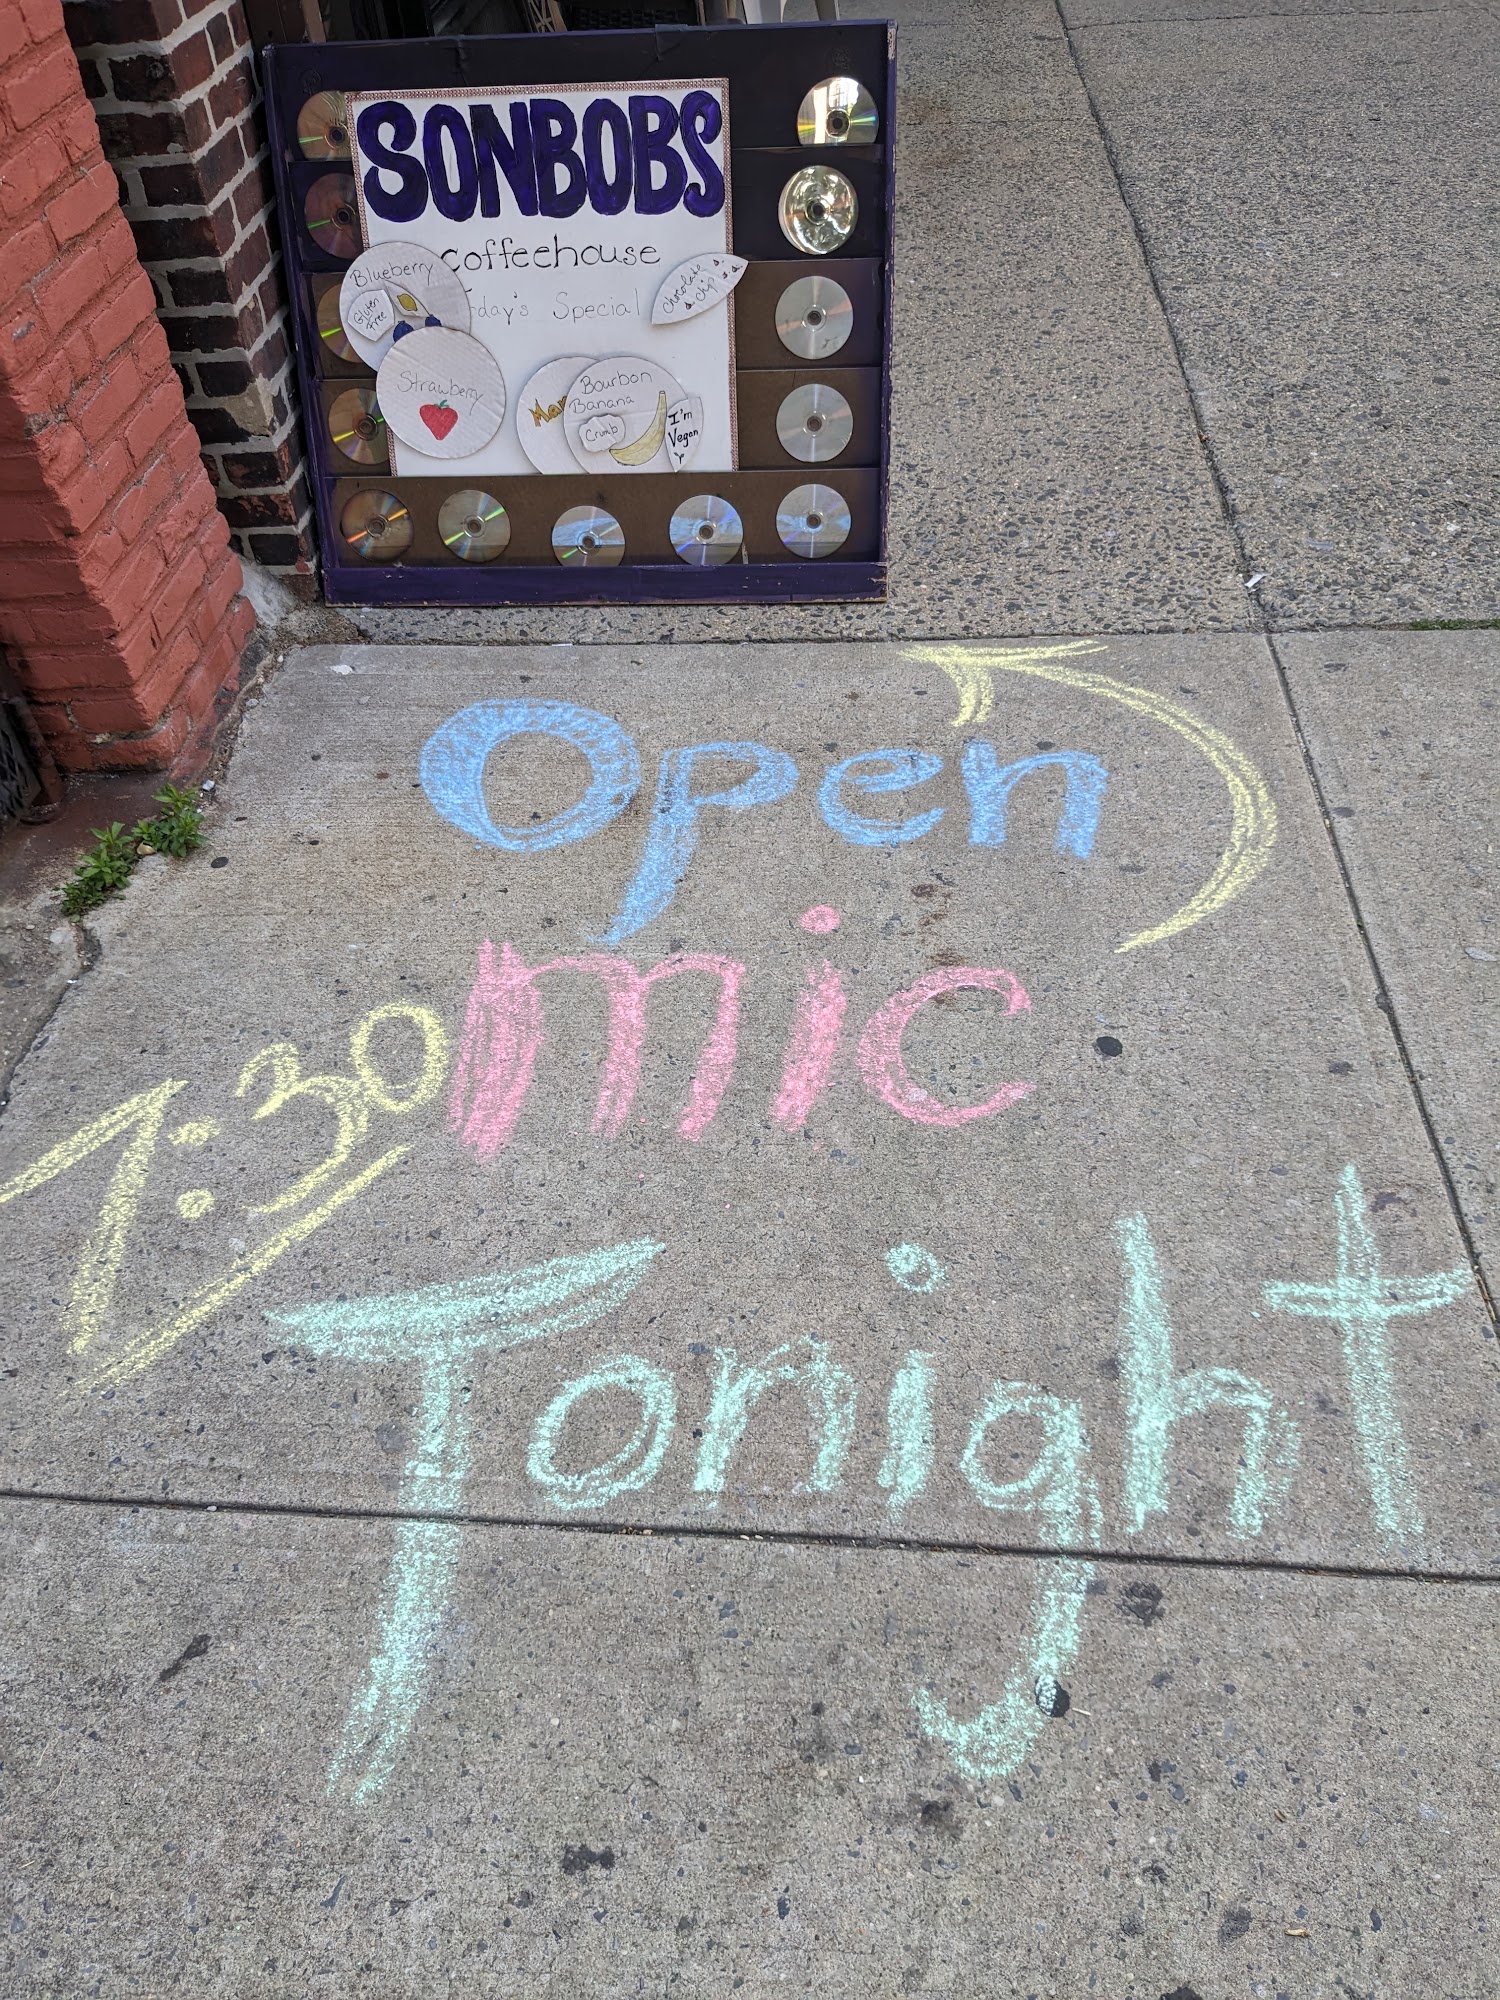 SONBOBS
coffeehouse
day's Special
Blueberry
Gluten
Free
chocolate
chip
Strawberry
Bourbon
Banana
Crumb
I'm
Vegan
Open
mic
7:30
Tonight